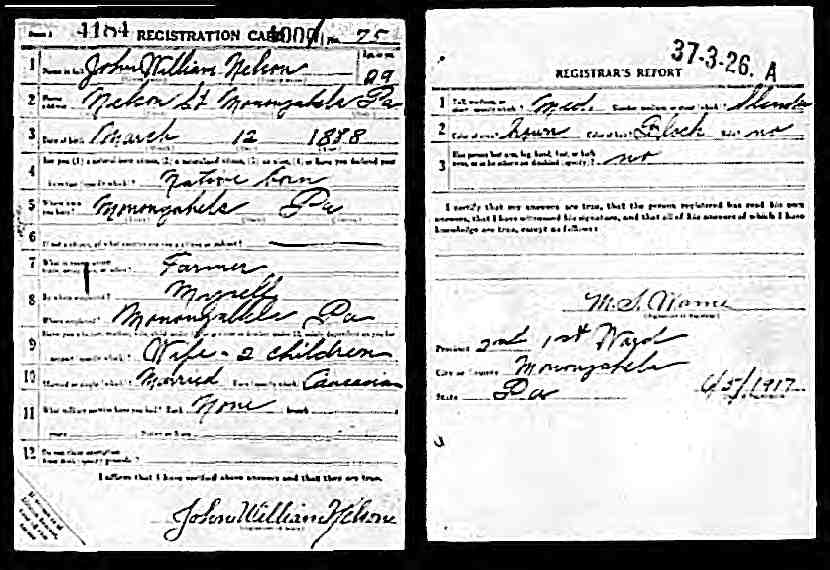 4184 REGISTRATION CARD No. 75
1 Name in full John William Nelson Age, in yrs. 29
2 Home address Nelson St Monongahela Pa
3 Date of birth March 12 1888
4 Are you (1) a natural-born citizen, (2) a naturalized citizen, (3) an alien, (4) or have you declared your
(specify which)? Native born
5 Where were you born? Monongahela Pa
6 If not a citizen, of what country are you a citizen or subject?
7 What is your present trade, occupation, or office? Farmer
8 By whom employed? Myself
Where employed? Monongahela Pa
9 Have you a father, mother, wife, child under 12, or a sister or brother under 12, solely dependent on you for
support (specify which)? Wife - 2 children
10 Married or single (which)? Married Race (specify which)? Caucasian
11 What military service have you had? Rank None branch
years Nation or State
12 Do you claim exemption from draft (specify grounds)?
I affirm that I have verified above answers and that they are true.
John William Nelson
37-3-26. A
REGISTRAR'S REPORT
1 Tall, medium, or short (specify which)? Med. Slender, medium, or stout (which)? Slender
2 Color of eyes? brown Color of hair? Black Bald? no
3 Has person lost arm, leg, hand, foot, or both eyes, or is he otherwise disabled (specify)? no
I certify that my answers are true, that the person registered has read his own
answers, that I have witnessed his signature, and that all of his answers of which I have
knowledge are true, except as follows:
(Signature of registrar)
Precinct 2nd 1st Ward
City or County Monongahela
State Pa 6/5/1917